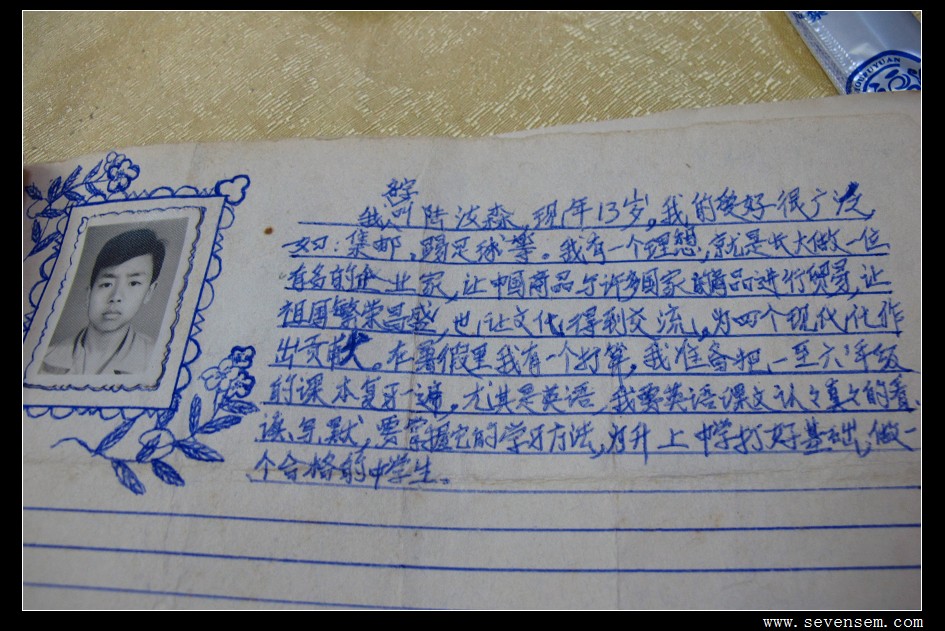 我叫陆汝森，现年13岁，我的爱好很广泛，
如：集邮，踢足球等。我有一个理想，就是长大做一位
有名的企业家，让中国商品与许多国家的商品进行贸易，让
祖国繁荣昌盛，也让文化得到交流，为四个现代化作
出贡献。在暑假里我有一个打算，我准备把一至六年级
的课本复习一遍，尤其是英语，我要英语课文认々真々的看、
读、写、默，要掌握它的学习方法，为升上中学打好基础，做一
个合格的中学生。
FUYUAN
www.sevensem.com